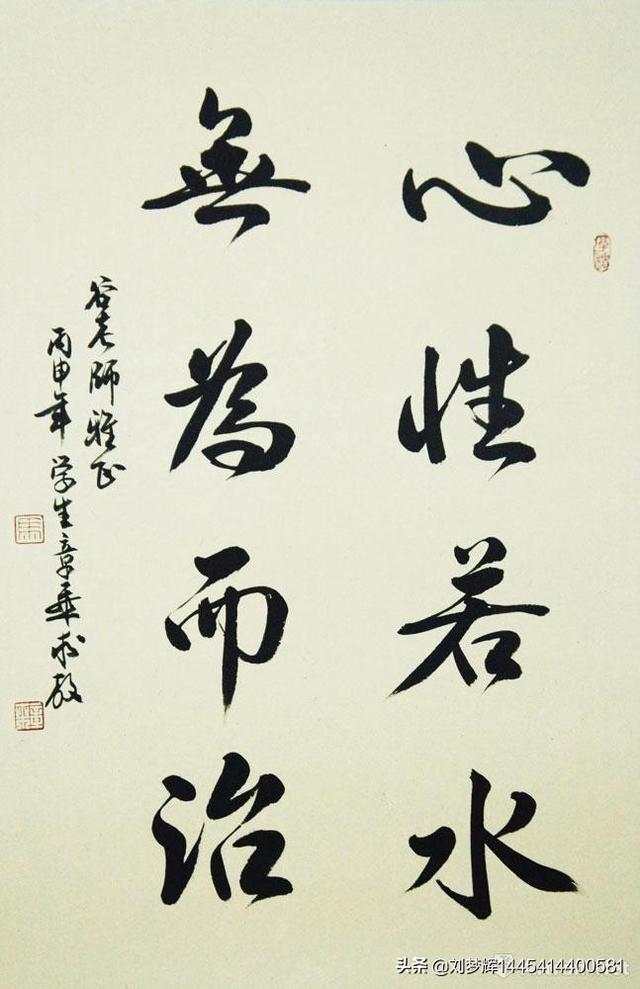 心性若水
無為而治
谷老师雅正
丙申年学生章華求教
头条 @刘梦辉1445414400581